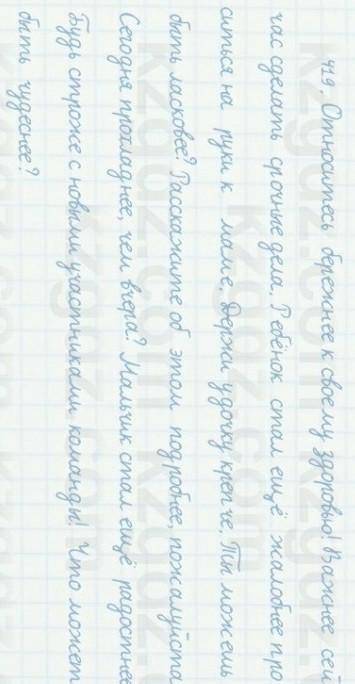 419. Относитесь бережнее к своему здоровью! Важнее сей
час сделать срочные дела. Ребёнок стал ещё жалобнее про
ситься на руки к маме. Держи удочку крепче. Ты можешь
быть ласковее? Расскажите об этом подробнее, пожалуйста
Сегодня прохладнее, чем вчера? Мальчик стал ещё радостнее
Будь строже с новыми участниками команды! Что может
быть чудеснее?
kzgdz.com
kzgdz.com
kzgdz.com